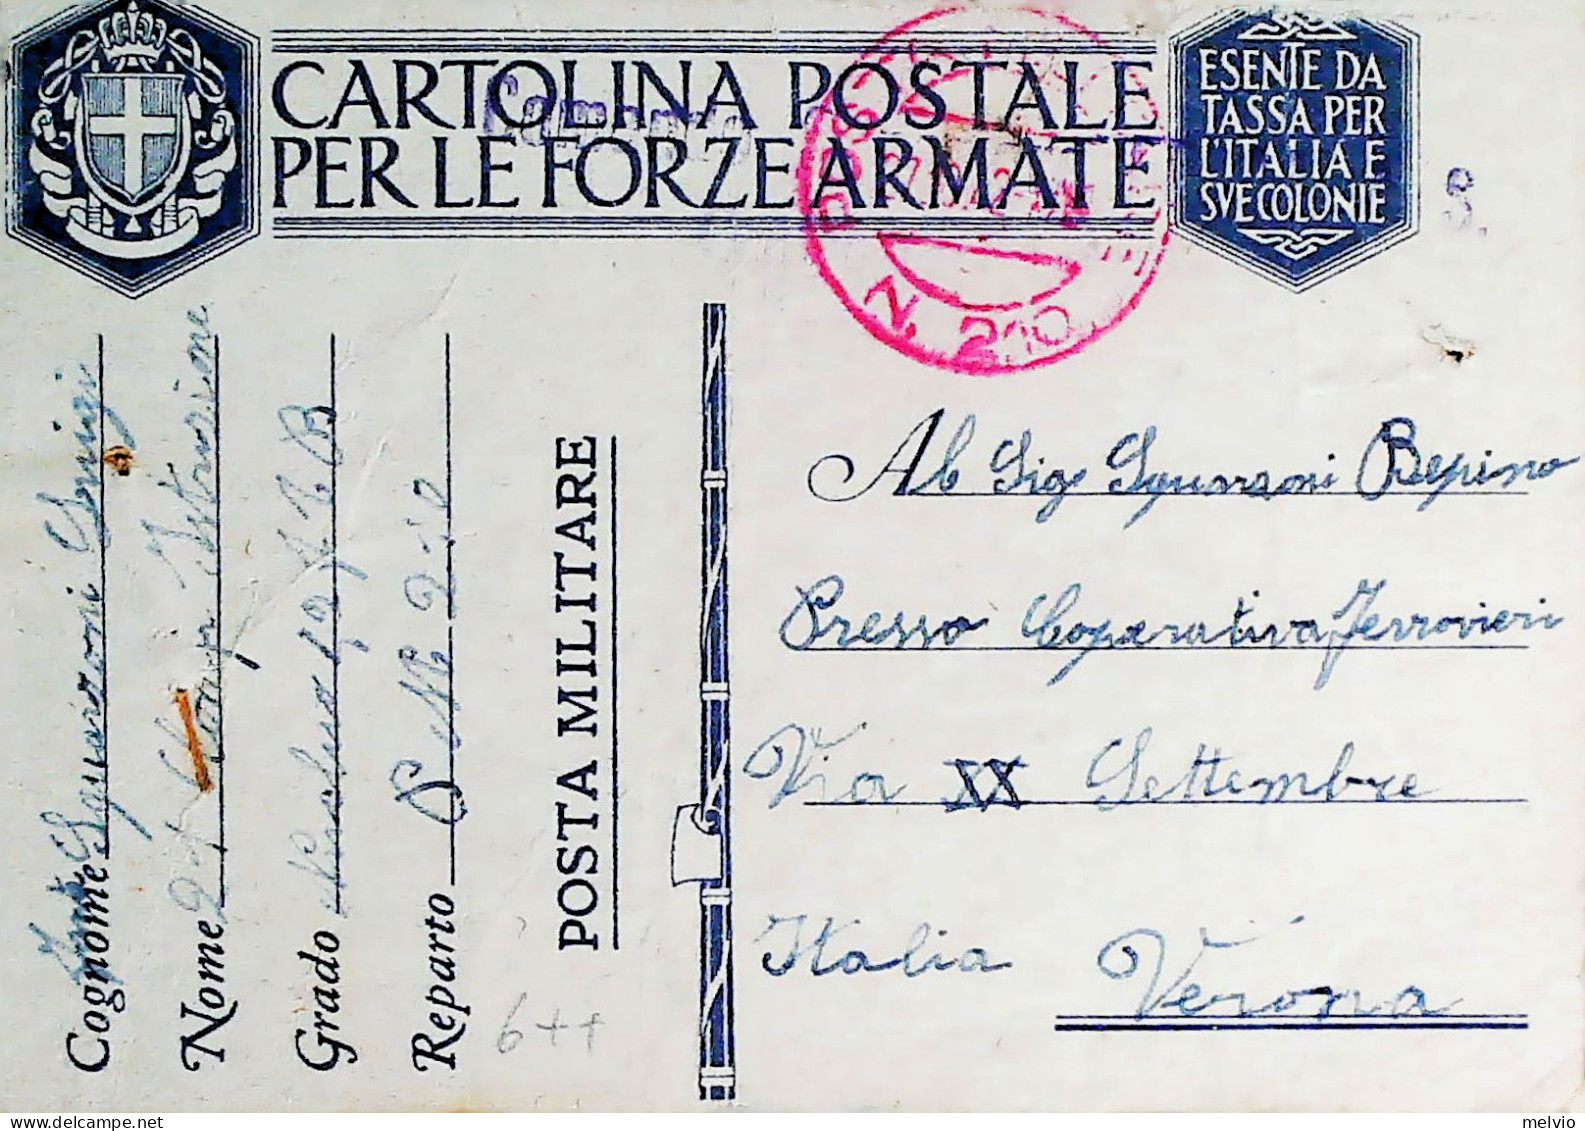 CARTOLINA POSTALE
PER LE FORZE ARMATE
ESENTE DA
TASSA PER
L'ITALIA E
SVE COLONIE
S.
N. 210
Cognome Squarzoni Luigi
Nome
Grado
Reparto P M 210
POSTA MILITARE
6++
Al Sig Squarzoni Bepino
Presso Coperativa Ferrovieri
Via XX Settembre
Italia Verona
melvio